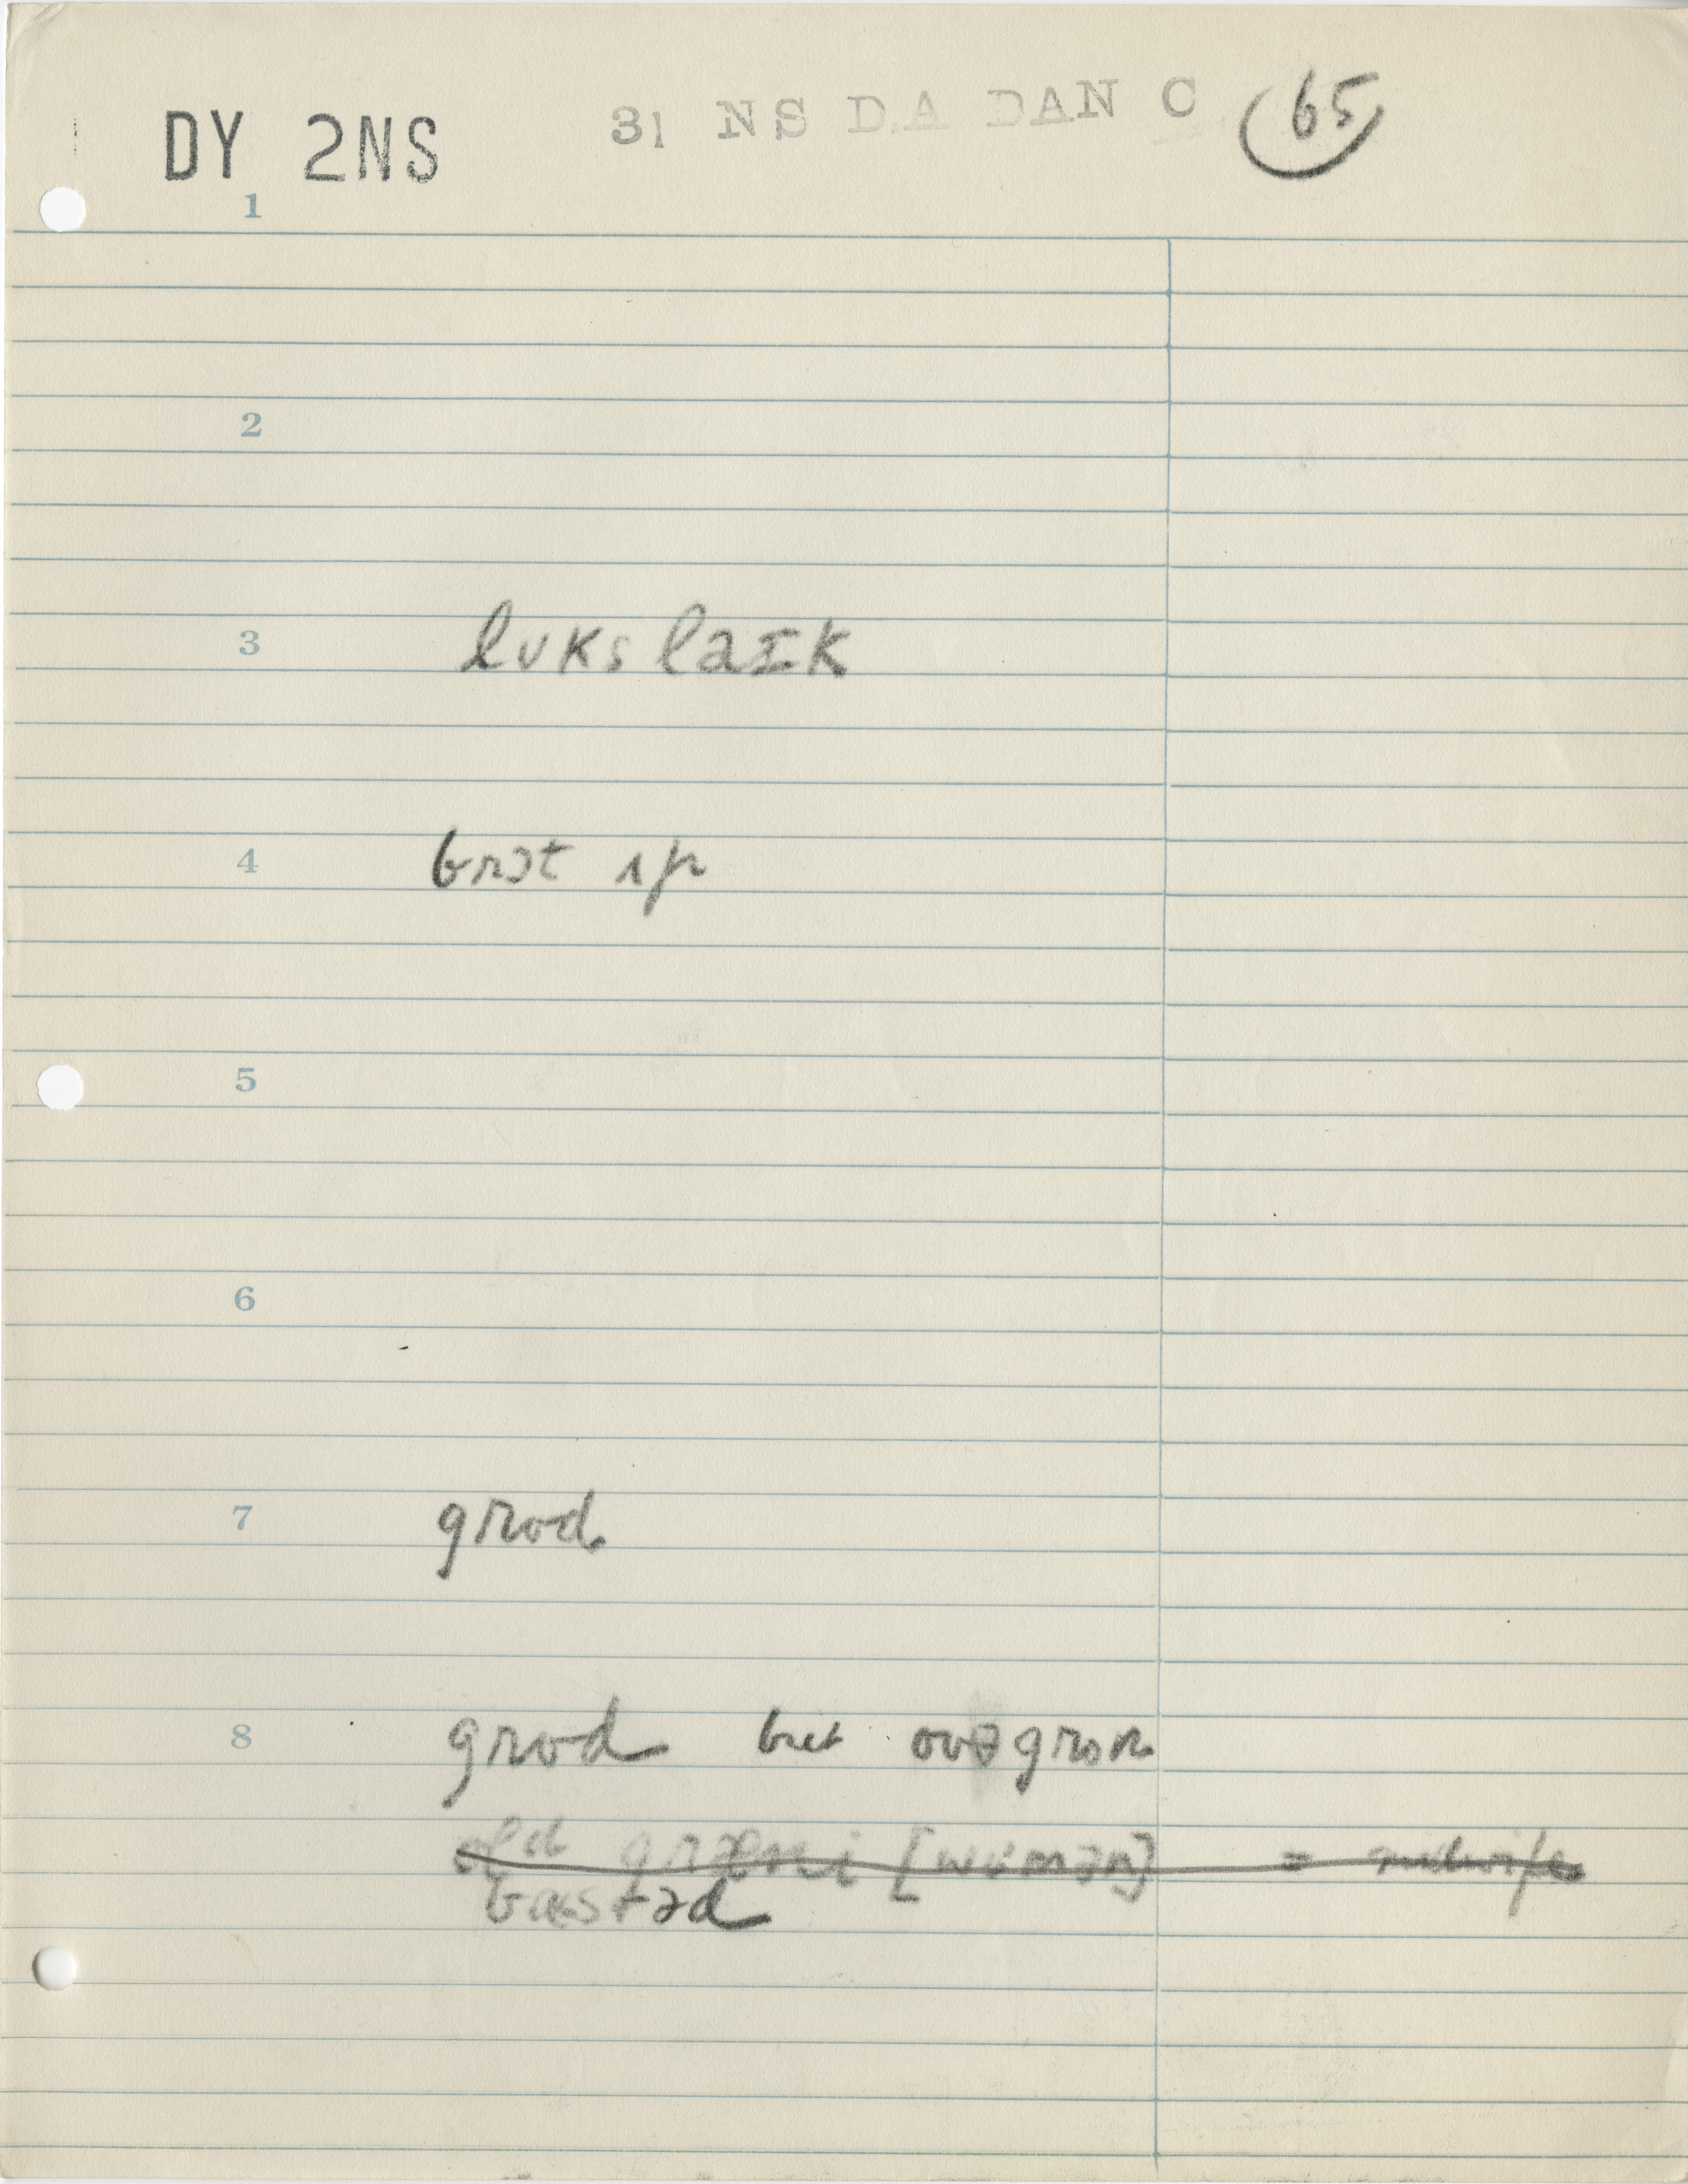 DY 2NS 31 NS DA DAN C 65
1
2
3 lʊks laɪk
4 brɔt ʌp
5
6
7 grod
8 grod but ovəgron
old græni [wʊmən] = midwife
bæstəd